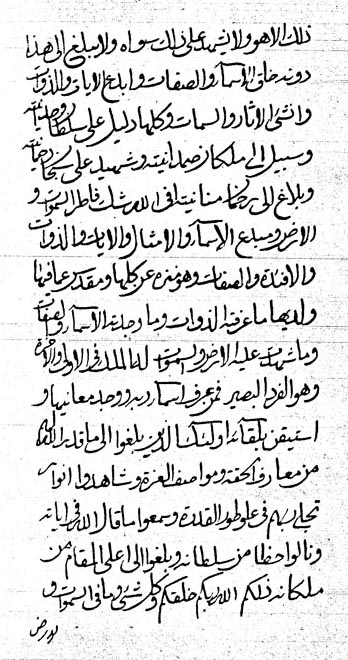 ذلك الا هو ولا يشهد على ذلك سواه ولا يبلغ الى هذا
دونه خلق الاسمآء والصفات وابدع الايات والذوات
وانشئ الاثار والسمات وكلها دليل على سلطان وحدانيته
وسبيل الى مليكان صمدانيته وشهيد على سبحان رحمانيته
وبلاغ الى منانيته افى الله شك فاطر السموات و
الارض ومبلغ الاسمآء والامثال والايات والذوات
والافئدة والصفات وهو منزه عن كلها ومقدس عما فيها
ولديها ما عرفته الذوات وما وجدته الاسمآء والصفات
وما شهدت عليه الارض والسموات له الملك فى الاولى والاخرة
وهو الفرد البصير فمن عرف اسمآء ربه ووجد معانيها و
استيقن بلقآئه اولئك الذين بلغوا الى ما قدر الله لهم
من معارف الحقة ومواصف العزة وشاهدوا انوار
تجلى ربهم فى علو طور القدرة وسمعوا ما قال الله فى اياته
ونالوا حظا من سلطانه وبلغوا الى على المقام من
ملكانه ذلكم الله ربكم خلقكم وكل شئ وما فى السموات و